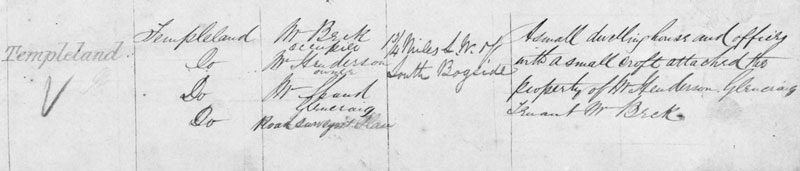 Templeland
Templeland
Do
Do
Do
Wm Beck
occupier
Wm Henderson
owner
Wm Shand
Glencraig
Road Survey Plan
1 3/4 Miles S.W. of
South Bogside
A small dwelling house and offices
with a small croft attached the
property of Wm Henderson Glencraig
Tenant Wm Beck.